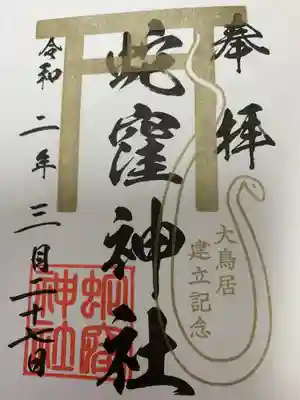 奉拝
大鳥居
建立記念
蛇窪神社
令和二年三月二十七日
蛇窪
神社